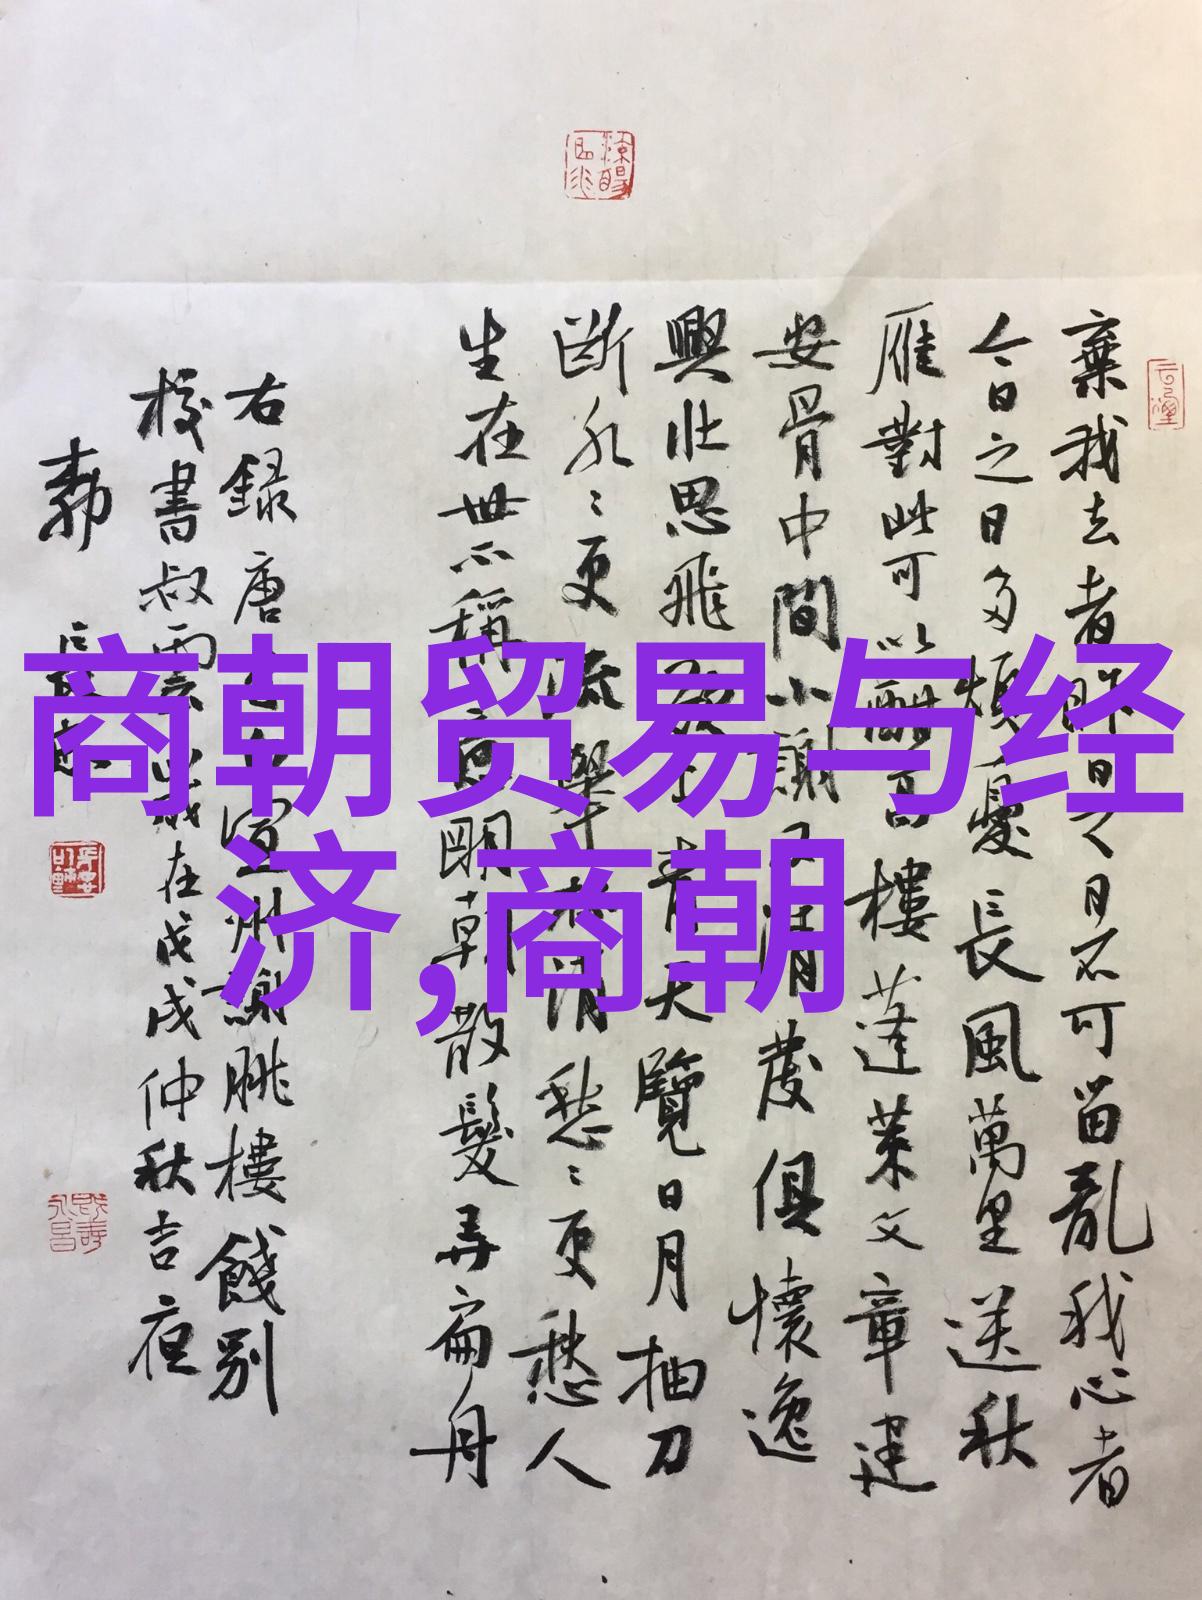 商朝贸易与经
济,商朝
棄我去者昨日之日不可留亂我心者
今日之日多煩憂長風萬里送秋
雁對此可以酣高樓蓬萊文章建
安骨中間小謝又清發俱懷逸
興壯思飛欲上青天覽日月抽刀
斷水〻更流舉杯消愁〻更愁人
生在世不稱意明朝散髮弄扁舟
右錄唐宣州謝朓樓餞別
校書叔雲歲在戊戌仲秋吉夜